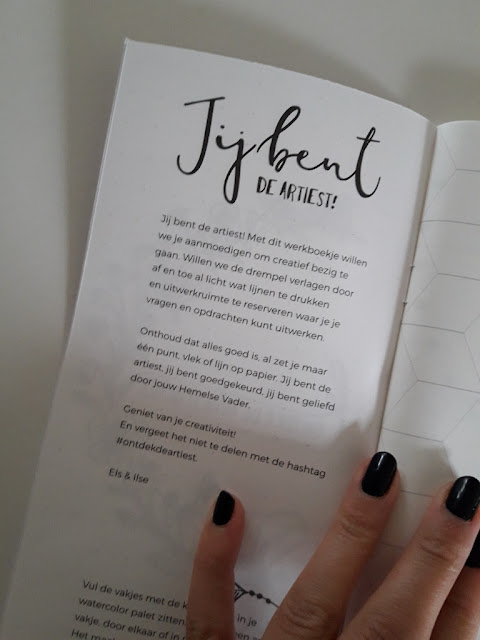 Jij bent
DE ARTIEST!
Jij bent de artiest! Met dit werkboekje willen
we je aanmoedigen om creatief bezig te
gaan. Willen we de drempel verlagen door
af en toe al licht wat lijnen te drukken
en uitwerkruimte te reserveren waar je je
vragen en opdrachten kunt uitwerken.
Onthoud dat alles goed is, al zet je maar
één punt, vlek of lijn op papier. Jij bent de
artiest, jij bent goedgekeurd, jij bent geliefd
door jouw Hemelse Vader.
Geniet van je creativiteit!
En vergeet het niet te delen met de hashtag
#ontdekdeartiest.
Els & Ilse
Vul de vakjes met de
watercolor palet zitten. in je
vakje, door elkaar of in